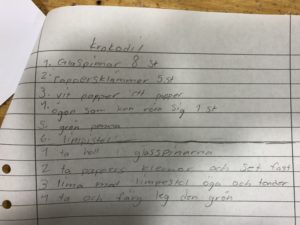 krokodil
1. Glaspinnar 8 st
2. Pappersklämmer 5 st
3. vit papper rött papper
4. ögon som kan röra sig 1 st
5. grön penna
6. limpistol
1 ta hål i glasspinarna
2 ta papers klemor och set fast
3 lima med limpestol öga och tänder
4 ta och färg leg den grön